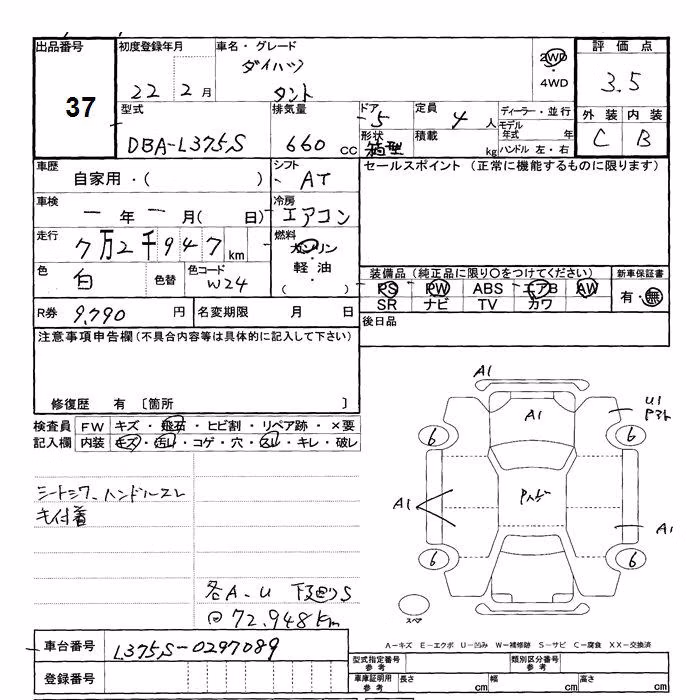 出品番号 初度登録年月 車名・グレード 評価点
37
22 2月
ダイハツ
タント
2WD
・
4WD
3.5
型式 排気量 ドア 定員 ディーラー・並行 外装 内装
DBA-L375S 660 cc 5 4人 モデル年式 年 C B
形状 箱型 積載 kg ハンドル 左・右
車歴 シフト セールスポイント (正常に機能するものに限ります)
自家用・( ) AT
車検 冷房
一年一月( 日) エアコン
走行 燃料
7万2千947km ガソリン
・
軽油
( )
色 色替 色コード
白 W24
装備品 (純正品に限り○をつけてください) 新車保証書
PS PW ABS エアB AW 有・無
SR ナビ TV カワ
R券 9,790 円 名変期限 月 日 後日品
注意事項申告欄(不具合内容等は具体的に記入して下さい)
修復歴 有 〔箇所 〕
検査員 FW キズ・飛石・ヒビ割・リペア跡・×要
記入欄 内装 キズ・汚れ・コゲ・穴・スレ・キレ・破レ
シートシワ、ハンドルスレ
キ付着
各A.U 下廻りS
72,948km
A1
A1
U1
6 6
Pハゲ
A1 A1
6 6
スペア
A-キズ E-エクボ U-凹み W-補修跡 S-サビ C-腐食 XX-交換済
車台番号 L375S-0297089
登録番号
型式指定番号 参考 類別区分番号 参考
車庫証明用 参考 長さ cm 幅 cm 高さ cm